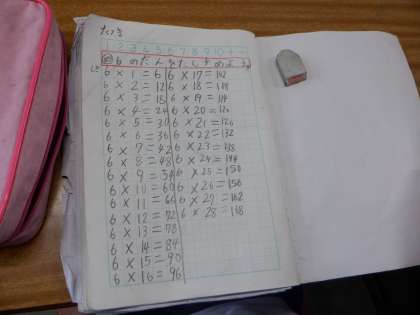 1 2 3 4 5 6 7 8 9 10
6のだんをたしかめよう
6×1=6
6×2=12
6×3=18
6×4=24
6×5=30
6×6=36
6×7=42
6×8=48
6×9=54
6×10=60
6×11=66
6×12=72
6×13=78
6×14=84
6×15=90
6×16=96
6×17=102
6×18=108
6×19=114
6×20=120
6×21=126
6×22=132
6×23=138
6×24=144
6×25=150
6×26=156
6×27=162
6×28=168